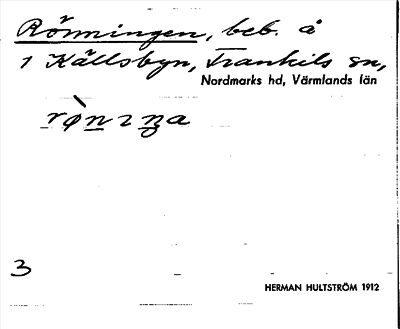 Rönningen, beb. å
1 Källsbyn, Trankils sn,
Nordmarks hd, Värmlands län
rø̀nıŋa
3
HERMAN HULTSTRÖM 1912